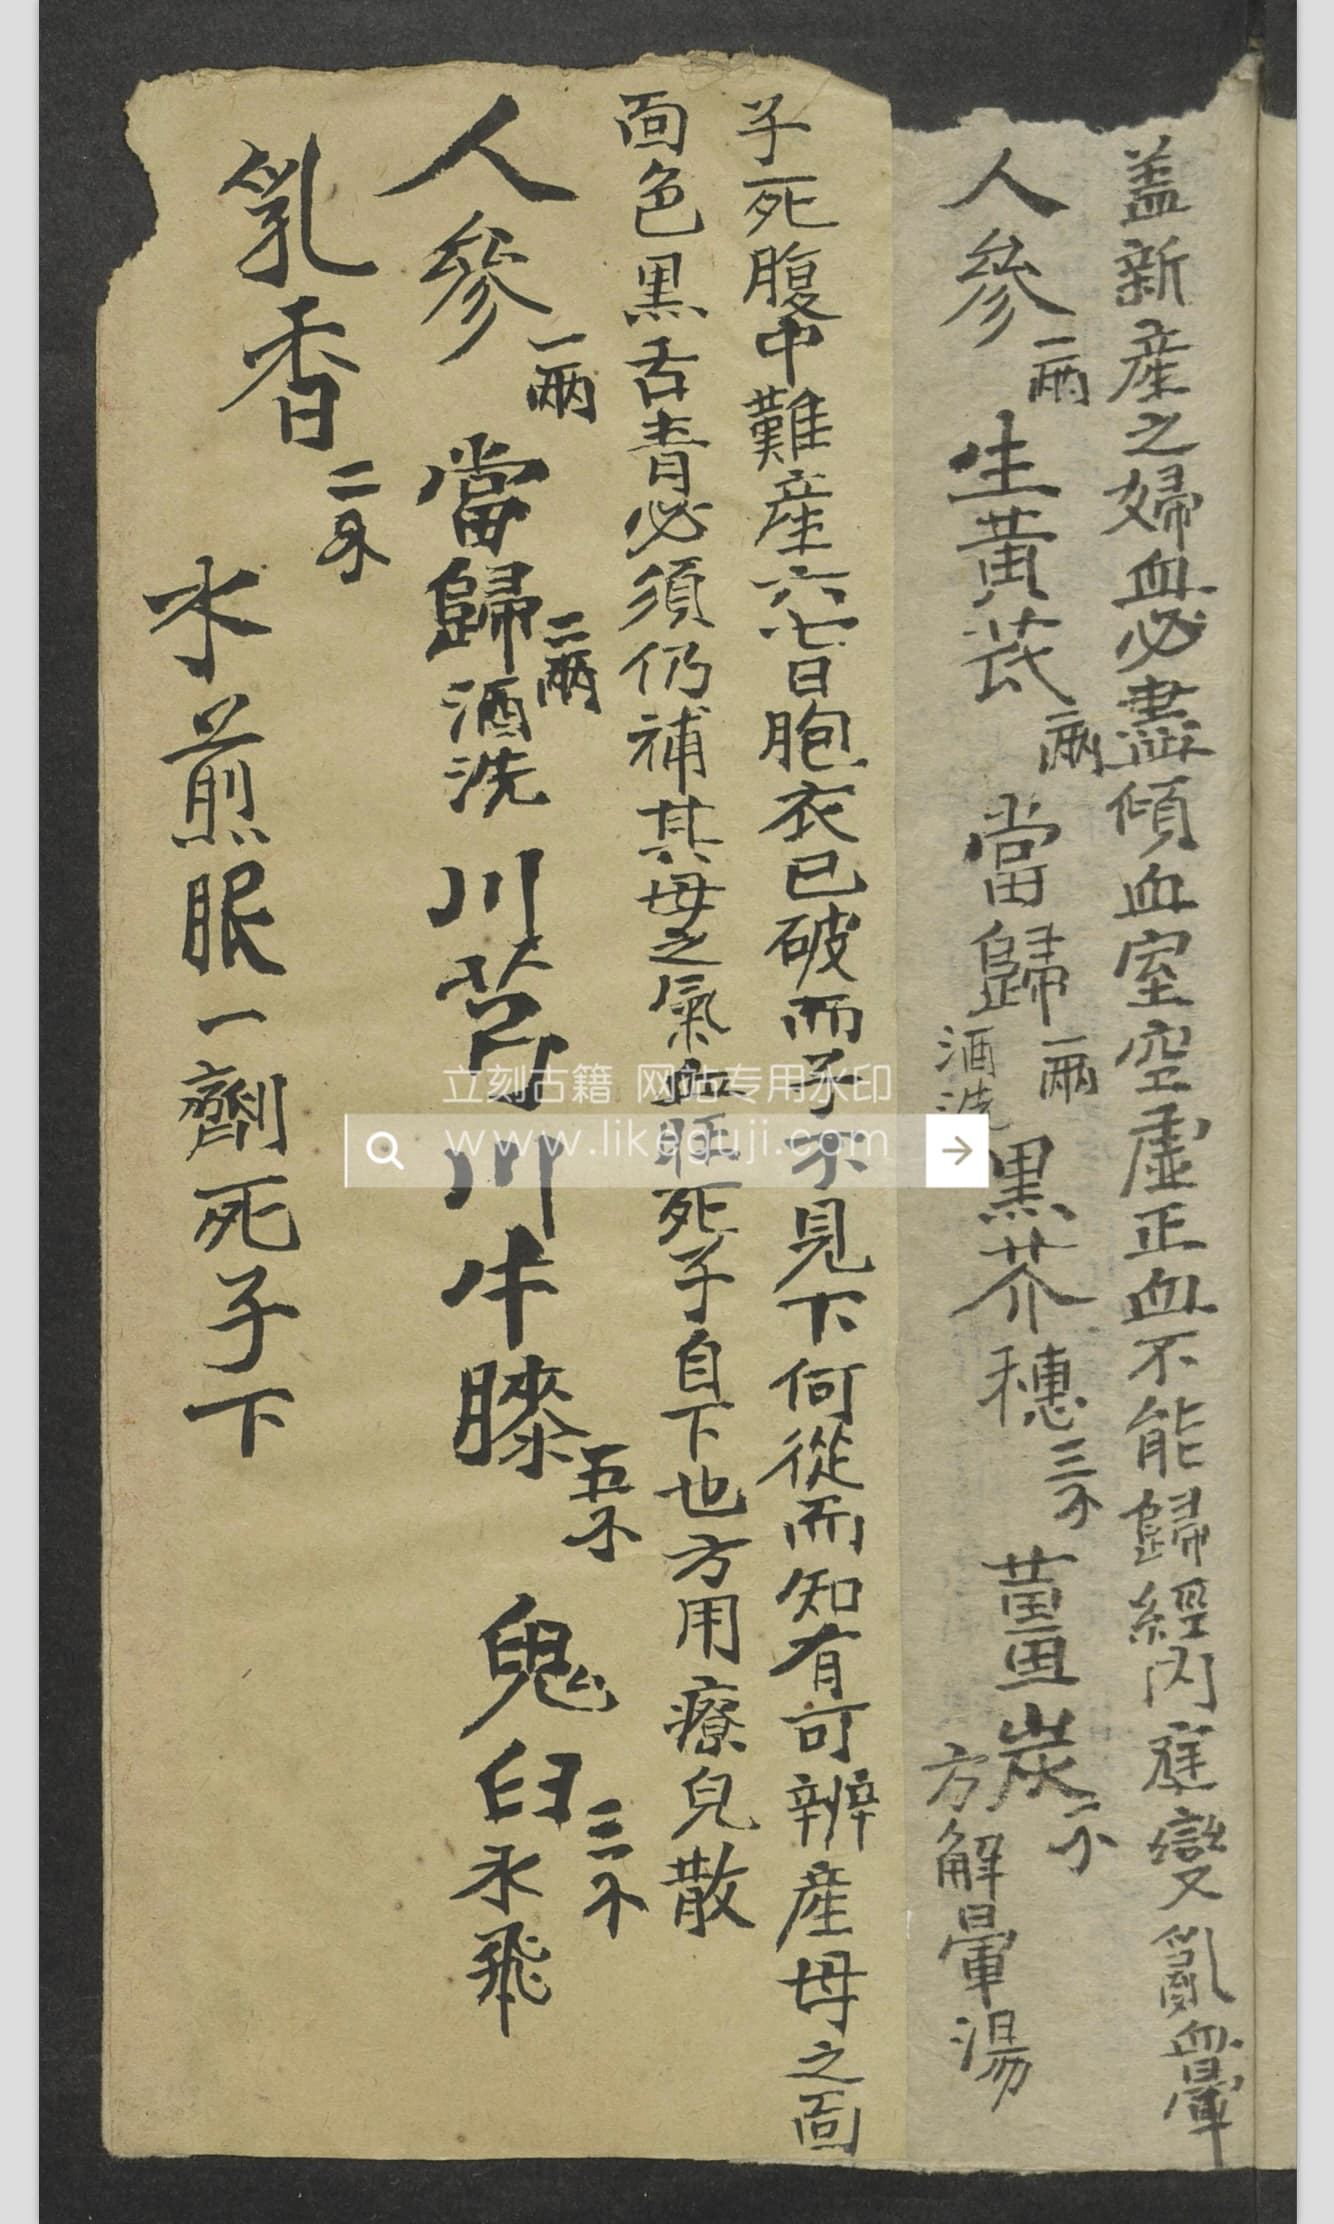 盖新產之婦血必盡傾血室空虛正血不能歸經內庭變亂血暈
人參一兩 生黃茋一兩 當歸一兩酒洗 黑芥穗三个 薑炭二个
方解暈湯
子死腹中難產六七日胞衣已破而子不見下何從而知有可辨產母之面
面色黑舌青必須仍補其母之氣血旺死子自下也方用療兒散
人參一兩 當歸二兩酒洗 川芎 川牛膝五个 鬼臼三个水飛
乳香二个
水煎眼一劑死子下
立刻古籍 网站专用水印
www.likeguji.com